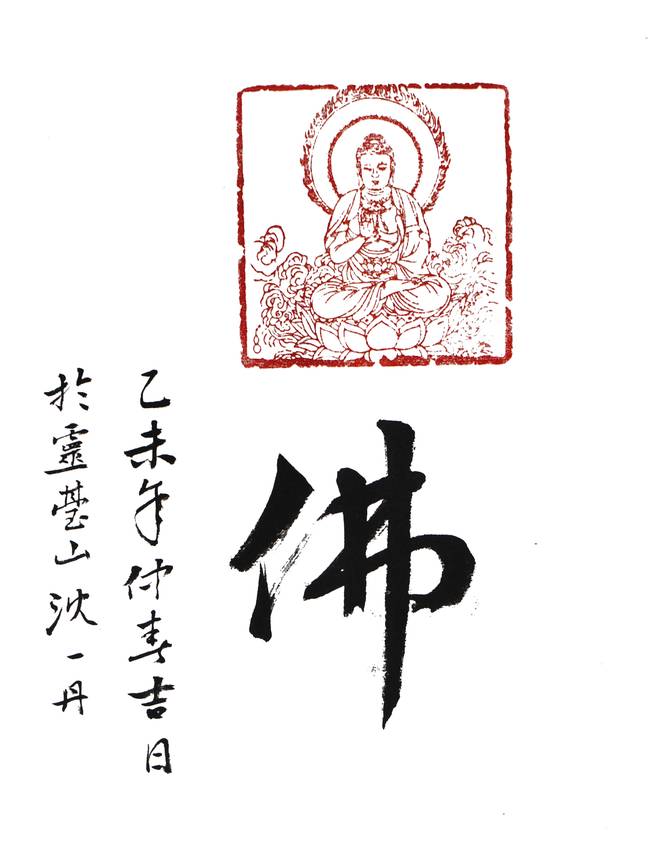 佛
乙未年仲春吉日
於靈臺山沈一丹